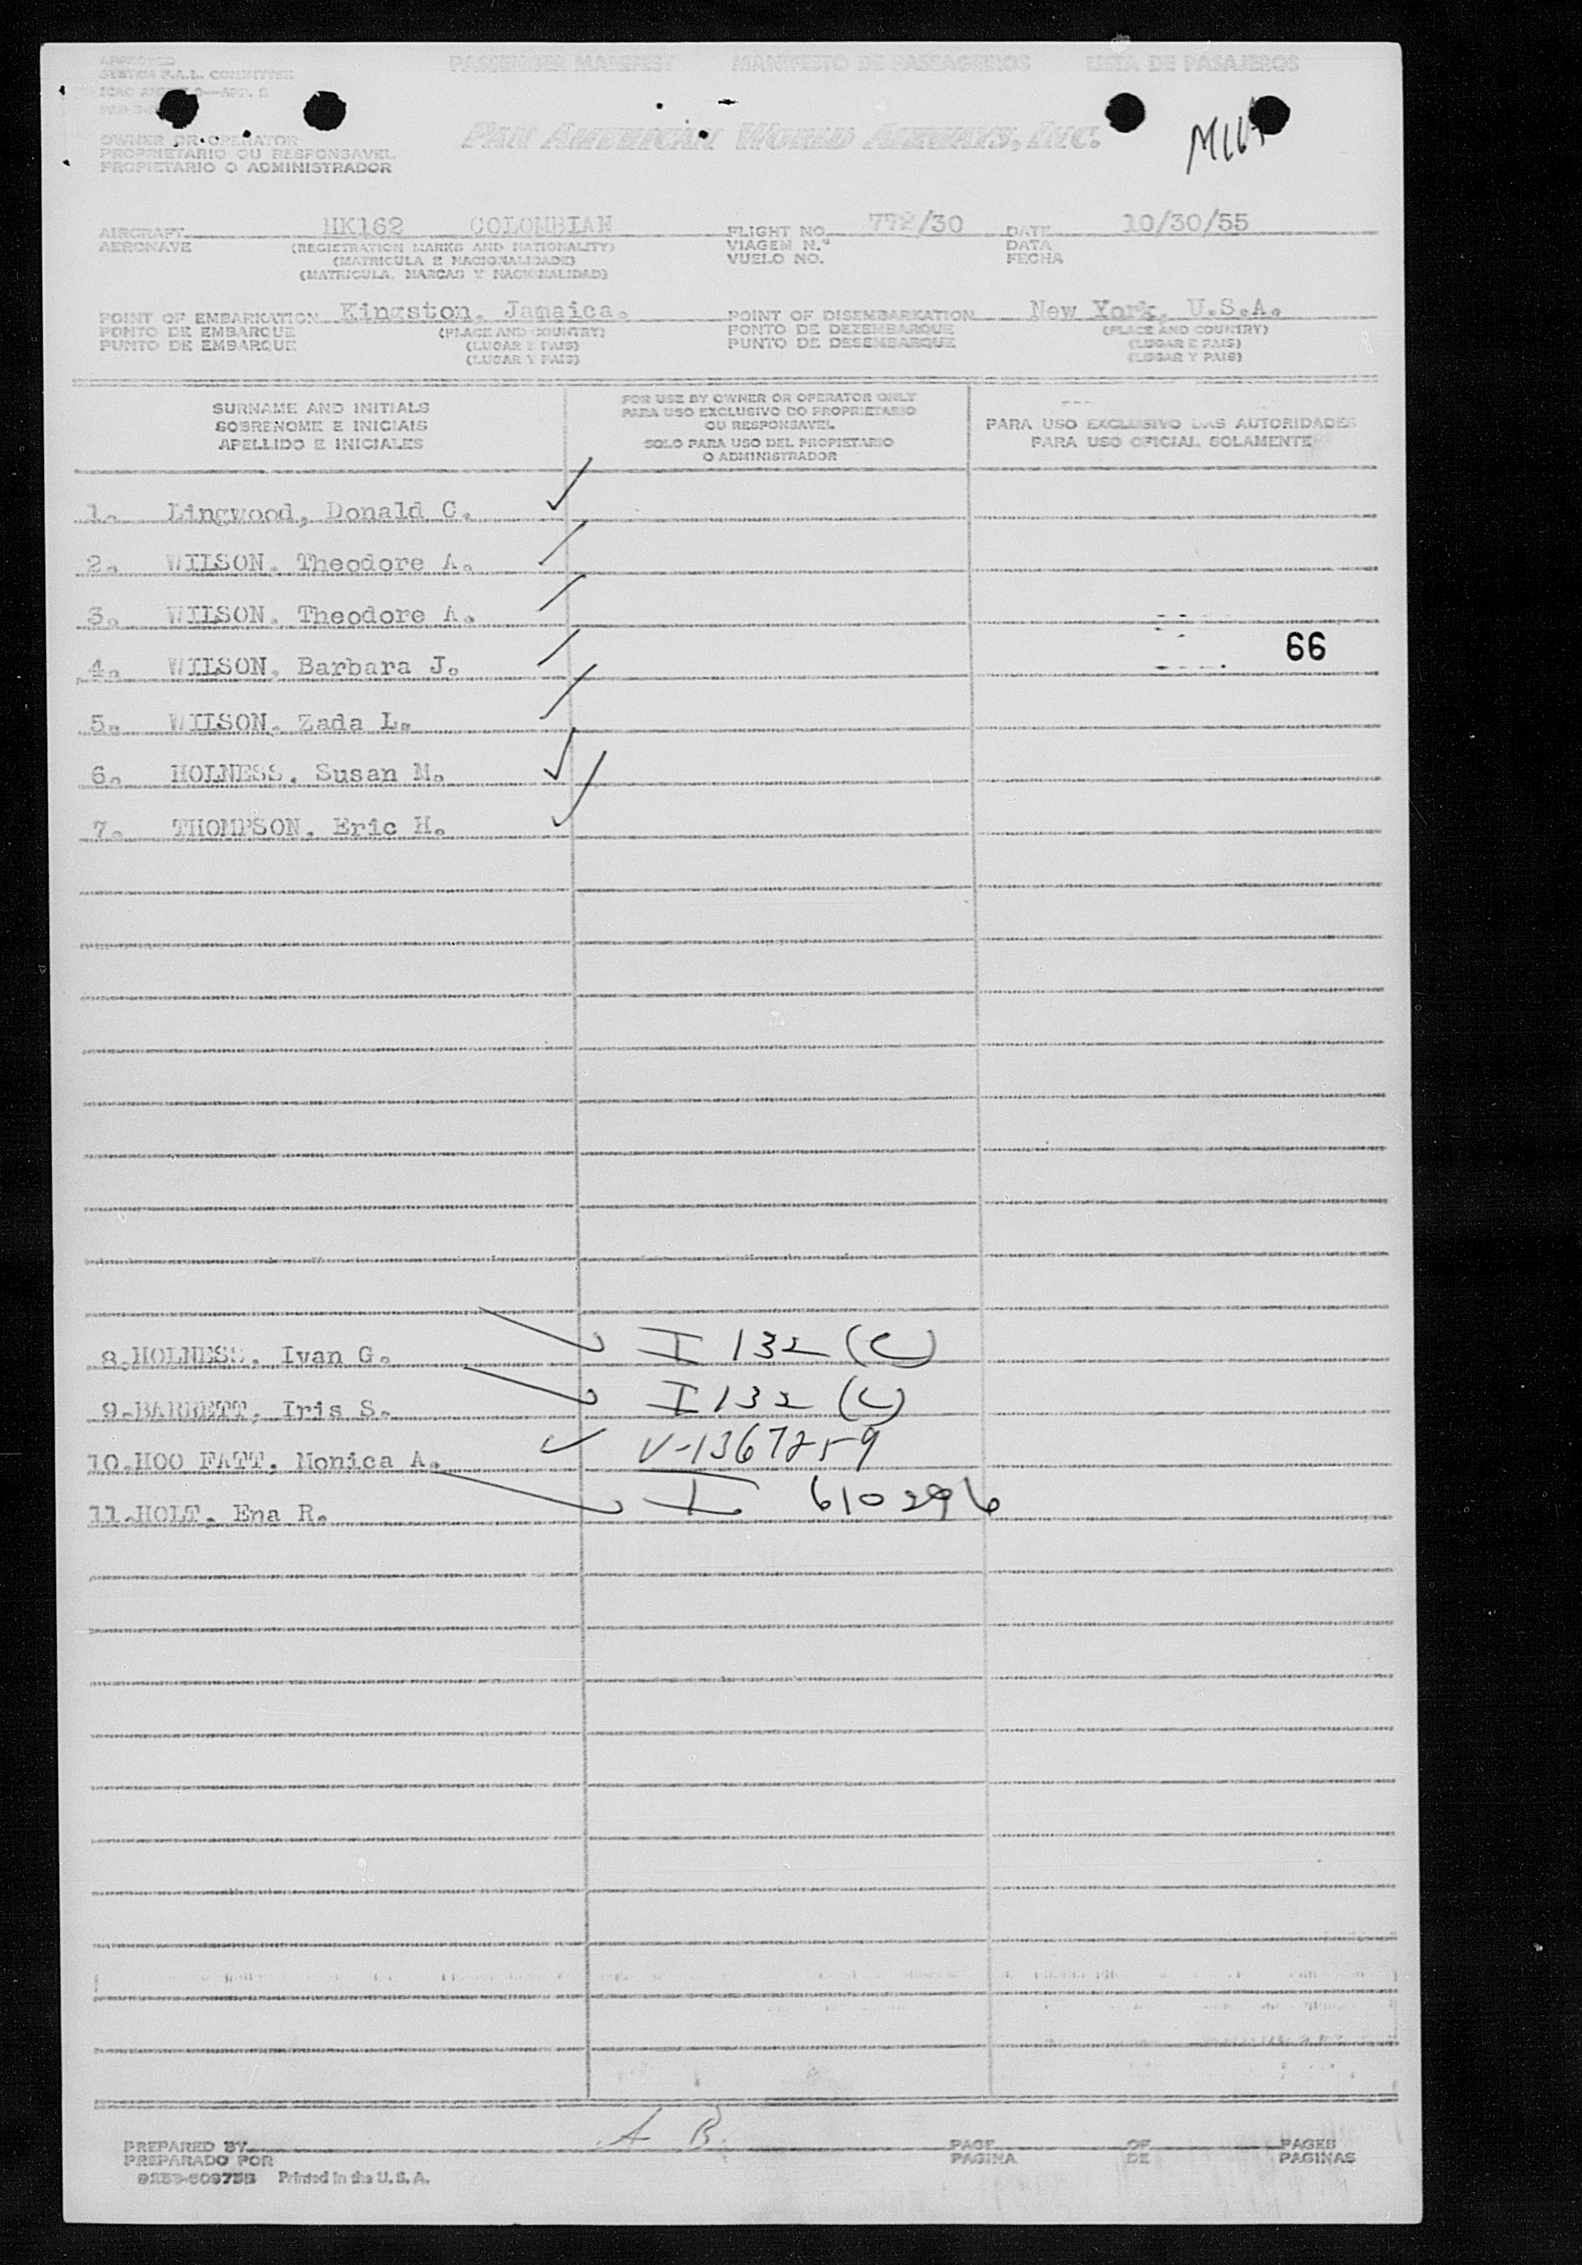 APPROVED PASSENGER MANIFEST MANIFESTO DE PASSAGEIROS LISTA DE PASAJEROS
F.A.L. COMMITTEE
OWNER OR OPERATOR PAN AMERICAN WORLD AIRWAYS, INC.
PROPRIETARIO OU RESPONSAVEL
PROPIETARIO O ADMINISTRADOR
AIRCRAFT HK162 COLOMBIAN FLIGHT NO. 772/30 DATE 10/30/55
AERONAVE (REGISTRATION MARKS AND NATIONALITY) VIAGEM N.º DATA
(MATRICULA E NACIONALIDADE) VUELO NO. FECHA
(MATRICULA, MARCAS Y NACIONALIDAD)
POINT OF EMBARKATION Kingston, Jamaica. POINT OF DISEMBARKATION New York, U.S.A.
PONTO DE EMBARQUE (PLACE AND COUNTRY) PONTO DE DEZEMBARQUE (PLACE AND COUNTRY)
PUNTO DE EMBARQUE (LUGAR E PAIS) PUNTO DE DESEMBARQUE (LUGAR E PAIS)
(LUGAR Y PAIS) (LUGAR Y PAIS)
SURNAME AND INITIALS
SOBRENOME E INICIAIS
APELLIDO E INICIALES
FOR USE BY OWNER OR OPERATOR ONLY
PARA USO EXCLUSIVO DO PROPRIETARIO
OU RESPONSAVEL
SOLO PARA USO DEL PROPIETARIO
O ADMINISTRADOR
PARA USO EXCLUSIVO DAS AUTORIDADES
PARA USO OFICIAL SOLAMENTE
1. Lingwood, Donald C.
2. WILSON, Theodore A.
3. WILSON, Theodore A.
66
4. WILSON, Barbara J.
5. WILSON, Zada L.
6. HOLNESS, Susan M.
7. THOMPSON, Eric H.
8. HOLNESS, Ivan G. I 132 (C)
9. BARRETT, Iris S. I 132 (C)
10. HOO FATT, Monica A. V-1367259
11. HOLT, Ena R. I 610296
A B.
PREPARED BY PAGE OF PAGES
PREPARADO POR PAGINA DE PAGINAS
Printed in the U. S. A.